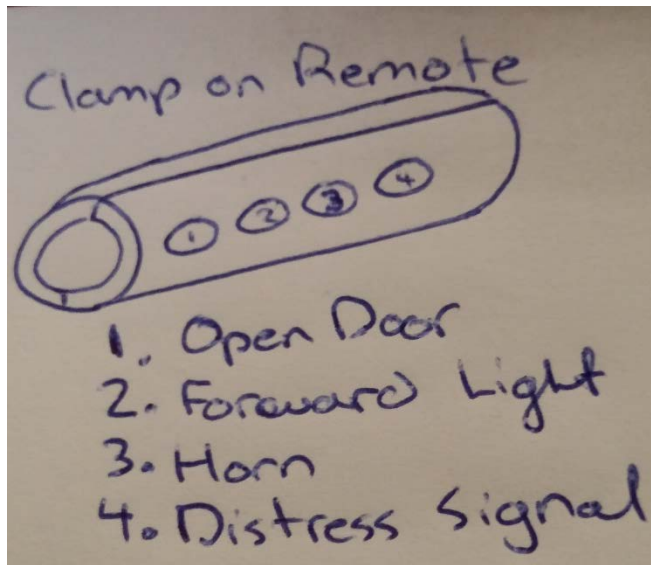 Clamp on Remote
1 2 3 4
1. Open Door
2. Forward Light
3. Horn
4. Distress Signal